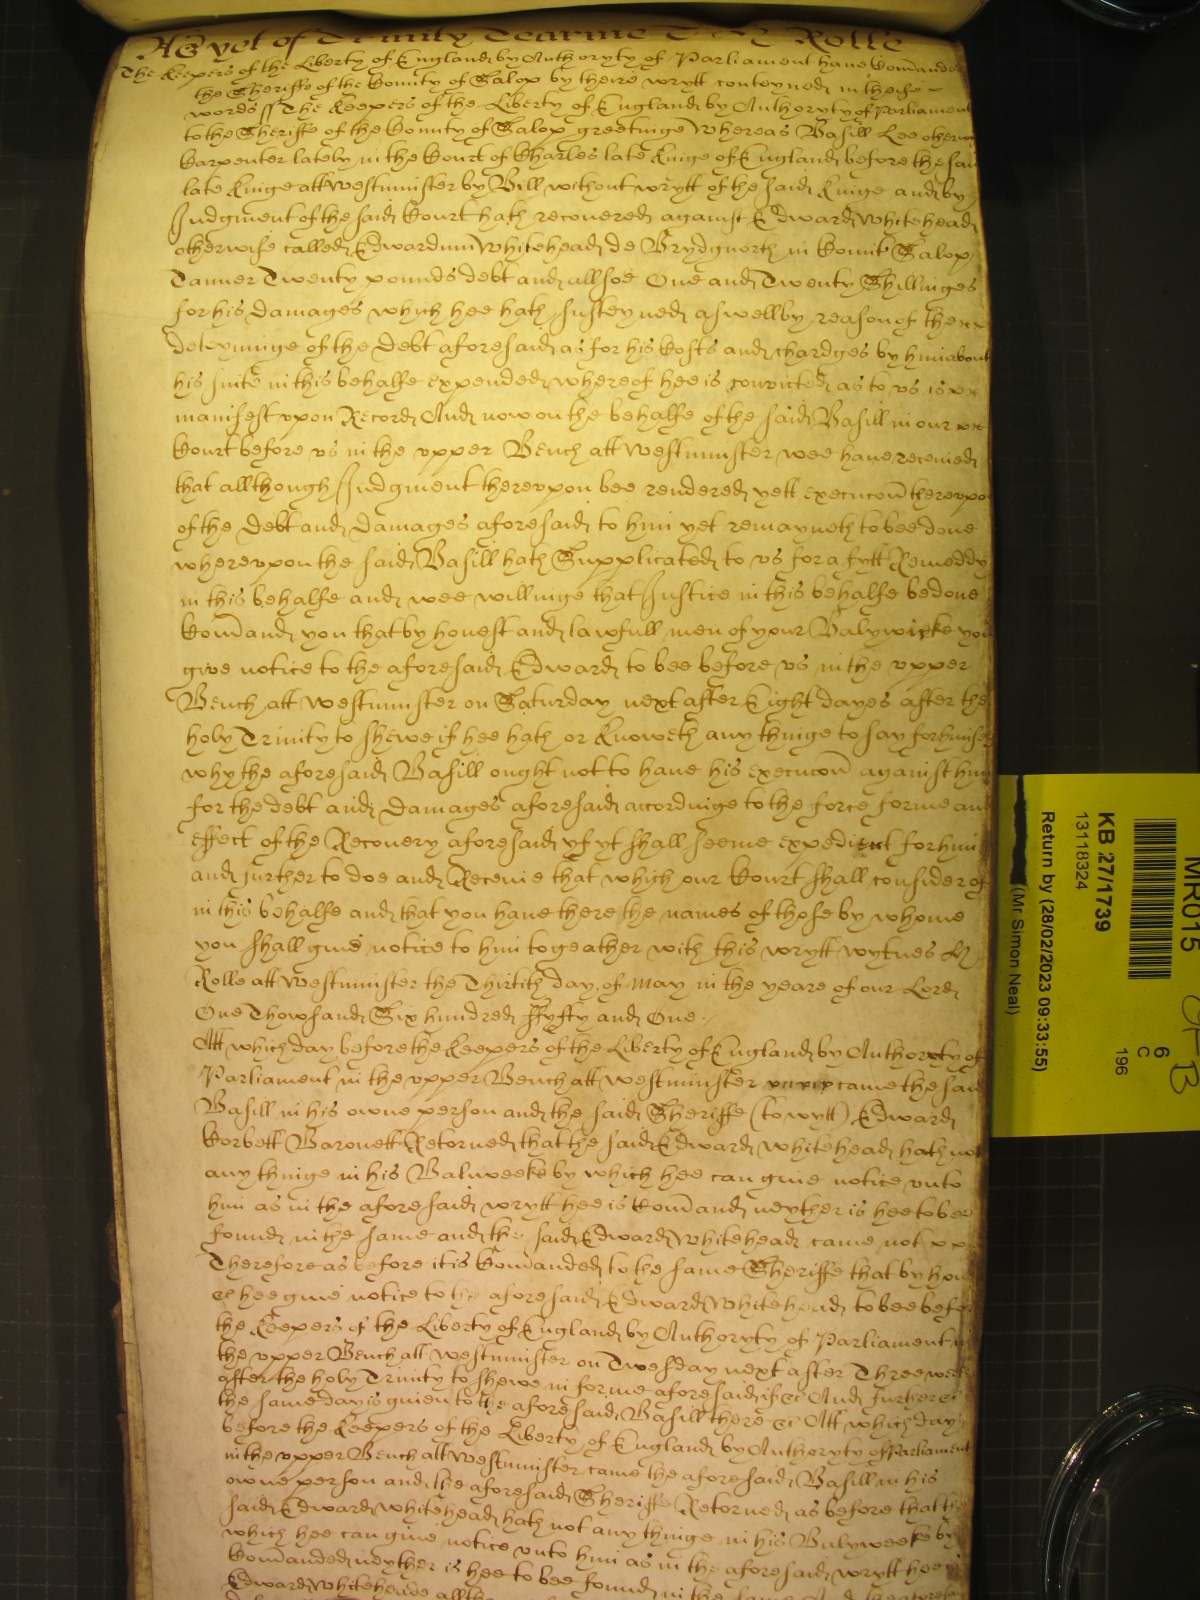 As yet of Trinity Tearme Rolle
The Keepers of the Liberty of England by Authoryty of Parliament haue Com̄anded
the Sheriffe of the County of Salop by theire wrytt conteyned in theise x
words ss The Keepers of the Liberty of England by Authoryty of Parliament
to the Sheriffe of the County of Salop greetinge Whereas Basill Lee otherw
Carpenter lately in the Court of Charles late Kinge of England before the said
late Kinge att Westminister by Bill without wrytt of the said Kinge and by
Judgment of the said Court hath recouered against Edward Whitehead
otherwise called Edwardum Whitehead de Brydgnorth in Comit Salop
Tanner Twenty pounds debt and allsoe One and Twenty Shillinges
for his damages which hee hath susteyned aswell by reason of the xx
deteyninge of the Debt aforesaid as for his Costs and chardges by him about
his suite in this behalfe expended whereof hee is convicted as to vs is xx
manifest vpon Record And now on the behalfe of the said Basill in our xx
Court before vs in the vpper Bench att Westminister wee haue receiued
that allthough Judgment therevpon bee rendered yett execuco͞n therevpo
of the Debt and damages aforesaid to him yet remayneth to bee done
wherevpon the said Basill hath Supplicated to vs for a fytt Remeddy
in this behalfe and wee willinge that Justice in this behalfe be done
Com̄and you that by honest and lawfull men of your Balywicke you
give notice to the aforesaid Edward to bee before vs in the vpper
Bench att Westminister on Saturday next after Eight dayes after the
holy Trinity to shewe if hee hath or knoweth any thinge to say for himself
why the aforesaid Basill ought not to haue his execuco͞n against him
for the debt and damages aforesaid accordinge to the force forme and
effect of the Recouery aforesaid yf yt shall seeme expedient for him
and further to doe and Receiue that which our Court shall consider of
in this behalfe and that you haue there the names of those by whome
you shall giue notice to him togeather with this wrytt wytnes H
Rolle att Westminister the Thirtith day of May in the yeare of our Lord
One Thowsand Six hundred ffyfty and One.
Att which day before the Keepers of the Liberty of England by Authoryty of
Parliament in the vpper Bench att Westminister came the said
Basill in his owne person and the said Sheriffe (to wytt) Edward
Corbett Baronett Retorned that the said Edward Whitehead hath not
any thinge in his Balweeke by which hee can giue notice vnto
him as in the aforesaid wrytt hee is Com̄and neyther is hee to bee
found in the same and the said Edward Whitehead came not xx
Therefore as before it is Com̄anded to the same Sheriffe that by hon
&c hee giue notice to the aforesaid Edward Whitehead to bee befo
the Keepers of the Liberty of England by Authoryty of Parliament in
the vpper Bench att Westminister on Twesday next after Three week
after the holy Trinity to shewe in forme aforesaid if &c And further &c
the same day is giuen to the aforesaid Basill there &c Att which day
before the Keepers of the Liberty of England by Authoryty of Parliament
in the vpper Bench att Westminister came the aforesaid Basill in his
owne person and the aforesaid Sheriffe Retorned as before that the
said Edward Whitehead hath not any thinge in his Balyweeke by
which hee can giue notice vnto him as in the aforesaid wrytt hee is
Com̄anded neyther is hee to bee found in the same And the aforesaid
Edward Whiteheade allthe
MR015
6
C
196
KB 27/1739
13118324
Return by (28/02/2023 09:33:55)
(Mr Simon Neal)